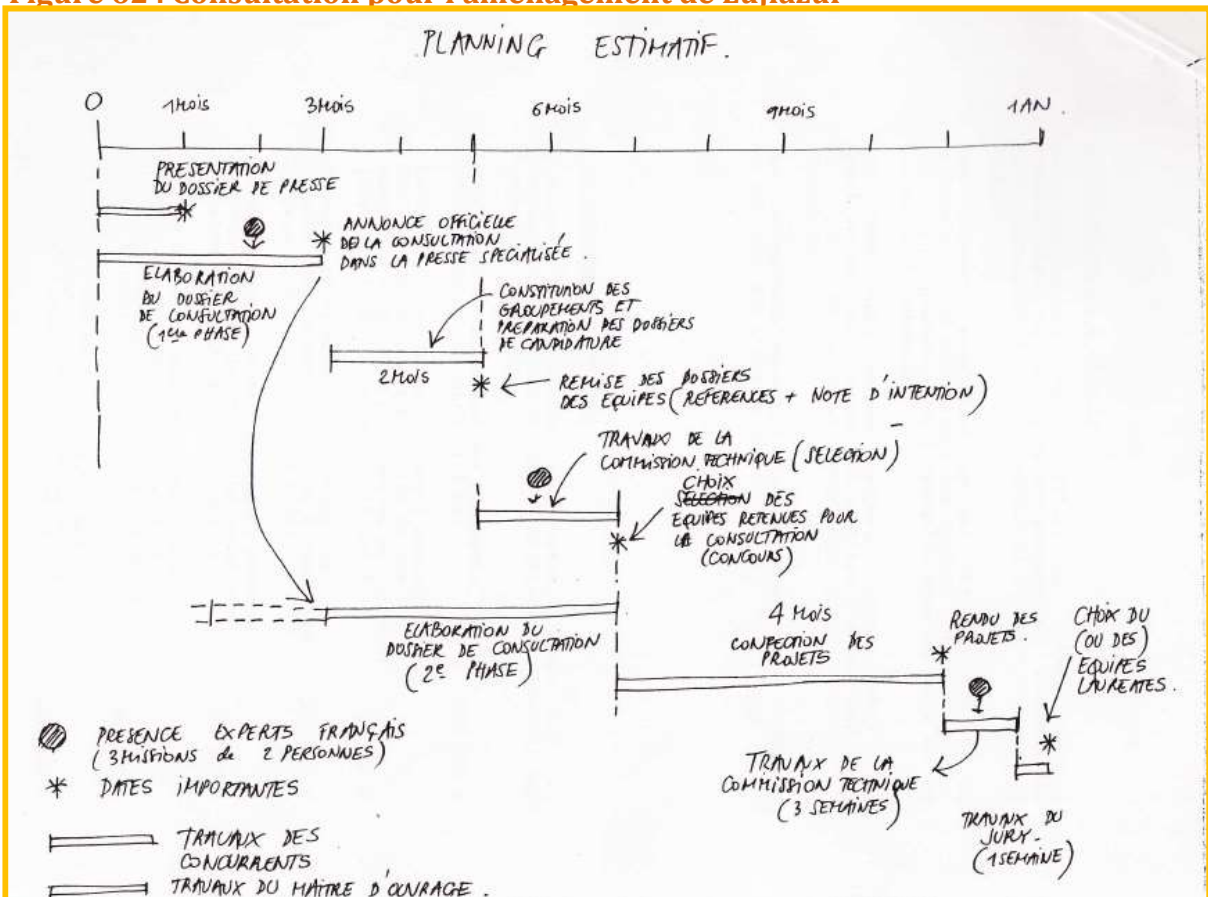 Figure 62 : Consultation pour l'aménagement de Zajlazar
PLANNING ESTIMATIF.
0 1 Mois 3 Mois 6 Mois 9 Mois 1 AN.
PRESENTATION
DU DOSSIER DE PRESSE
ANNONCE OFFICIELLE
DE LA CONSULTATION
DANS LA PRESSE SPECIALISÉE.
ELABORATION
DU DOSSIER
DE CONSULTATION
(1ère PHASE)
CONSTITUTION DES
GROUPEMENTS ET
PREPARATION DES DOSSIERS
DE CANDIDATURE
2 Mois
REMISE DES DOSSIERS
DES EQUIPES (REFERENCES + NOTE D'INTENTION)
TRAVAUX DE LA
COMMISSION TECHNIQUE (SELECTION)
CHOIX
SELECTION DES
EQUIPES RETENUES POUR
LA CONSULTATION
(CONCOURS)
ELABORATION DU
DOSSIER DE CONSULTATION
(2e PHASE)
4 Mois
CONFECTION DES
PROJETS
RENDU DES
PROJETS.
CHOIX DU
(OU DES)
EQUIPES
LAUREATES.
TRAVAUX DE LA
COMMISSION TECHNIQUE
(3 SEMAINES)
TRAVAUX DU
JURY.
(1 SEMAINE)
PRESENCE EXPERTS FRANÇAIS
(3 MISSIONS de 2 PERSONNES)
DATES IMPORTANTES
TRAVAUX DES
CONCURRENTS
TRAVAUX DU MAÎTRE D'OUVRAGE.